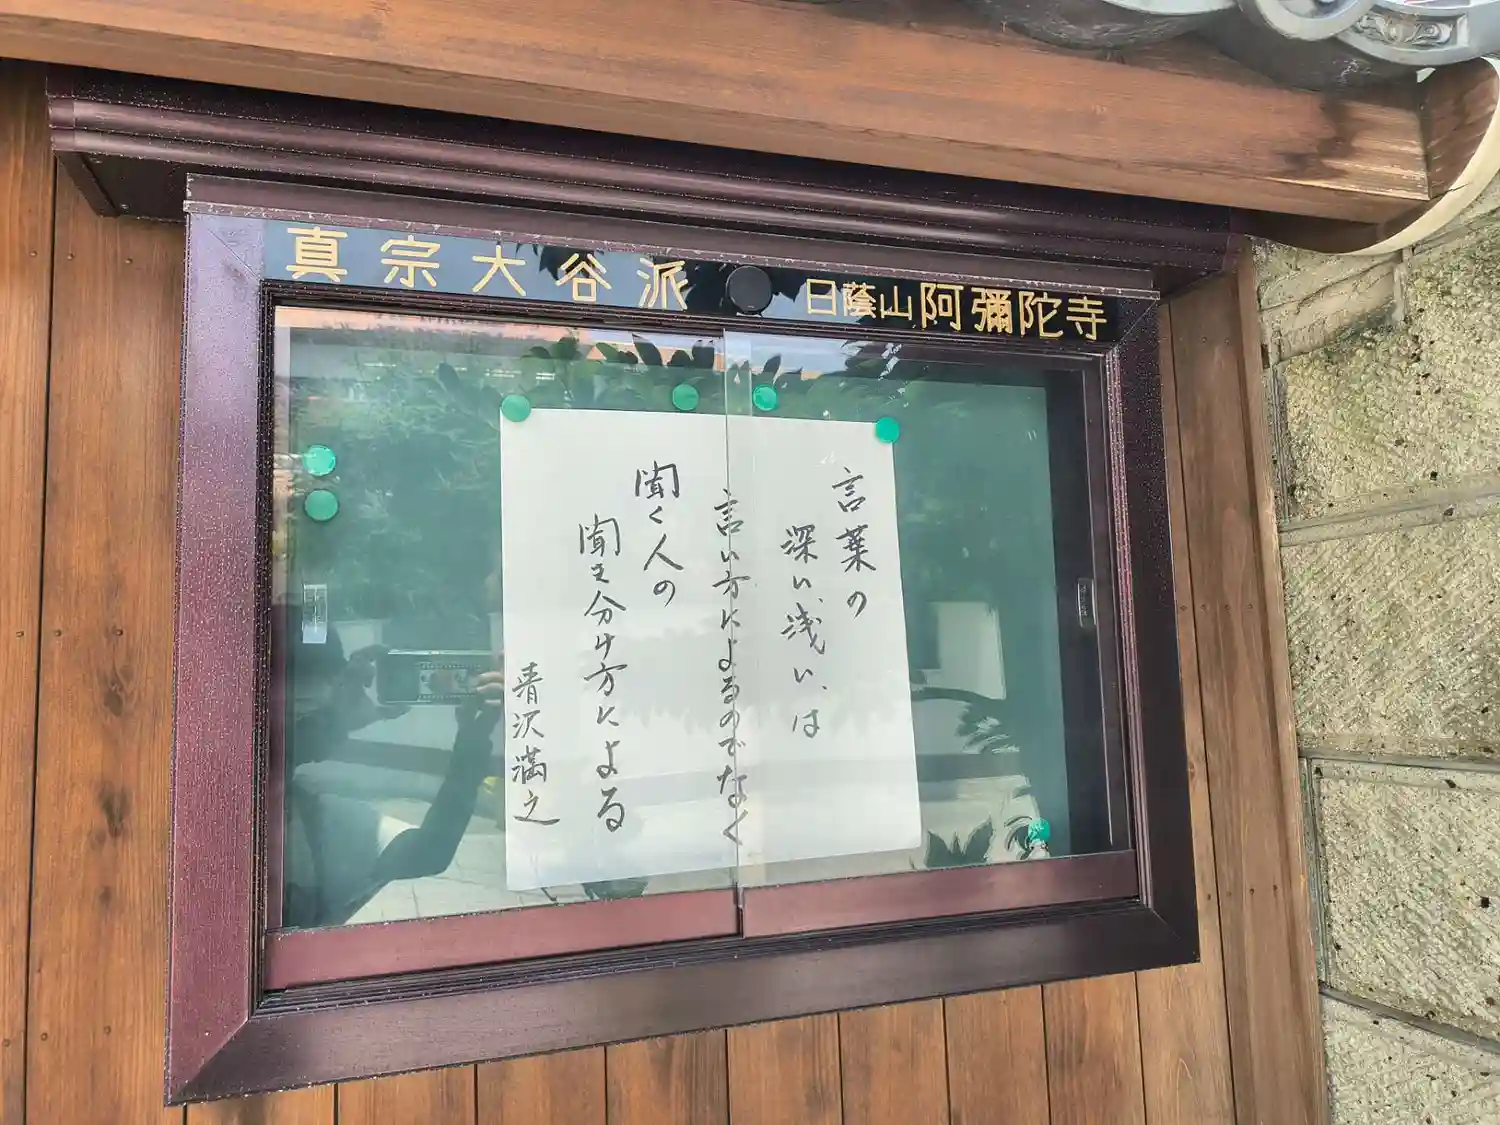 真宗大谷派
日蔭山阿彌陀寺
言葉の
深い、浅い、は
言い方によるのでなく
聞く人の
聞き分け方による
清沢満之